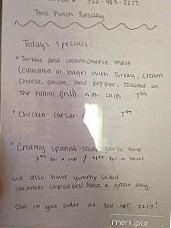 Two Punch Tuesday
Todays Specials:
* Turkey and creamcheese melt
(ciabatta or bagel with turkey, cream
cheese, onion, and pepper, toasted on
the panini grill) w/ chips 7⁹⁹
* Chicken caesar 7⁹⁹
* Creamy spanish soup
a cup / 4⁹⁹ for a bowl
We also have yummy salted
caramel cupcakes! have a great day.
Call in your order at 2219!
menupix